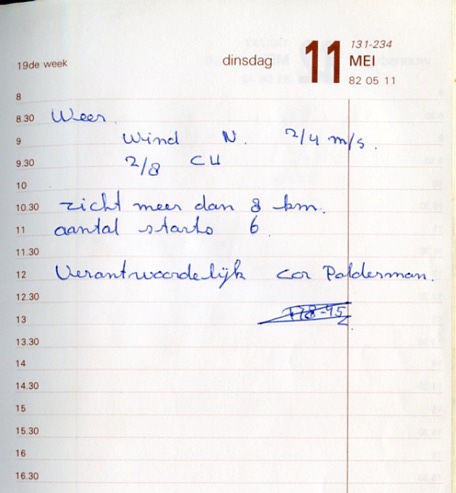 19de week dinsdag 11 131-234
MEI
82 05 11
8
8.30 Weer.
9 Wind N. 2/4 m/s.
9.30 2/8 CU
10
10.30 zicht meer dan 8 km.
11 aantal starts 6.
11.30
12 Verantwoordelijk Cor Polderman.
12.30
13
13.30
14
14.30
15
15.30
16
16.30